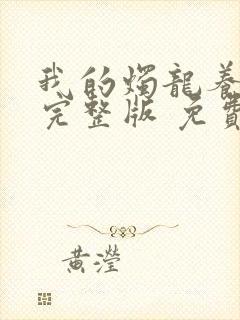 我的燭龍養
完整版 免費
黃瀅